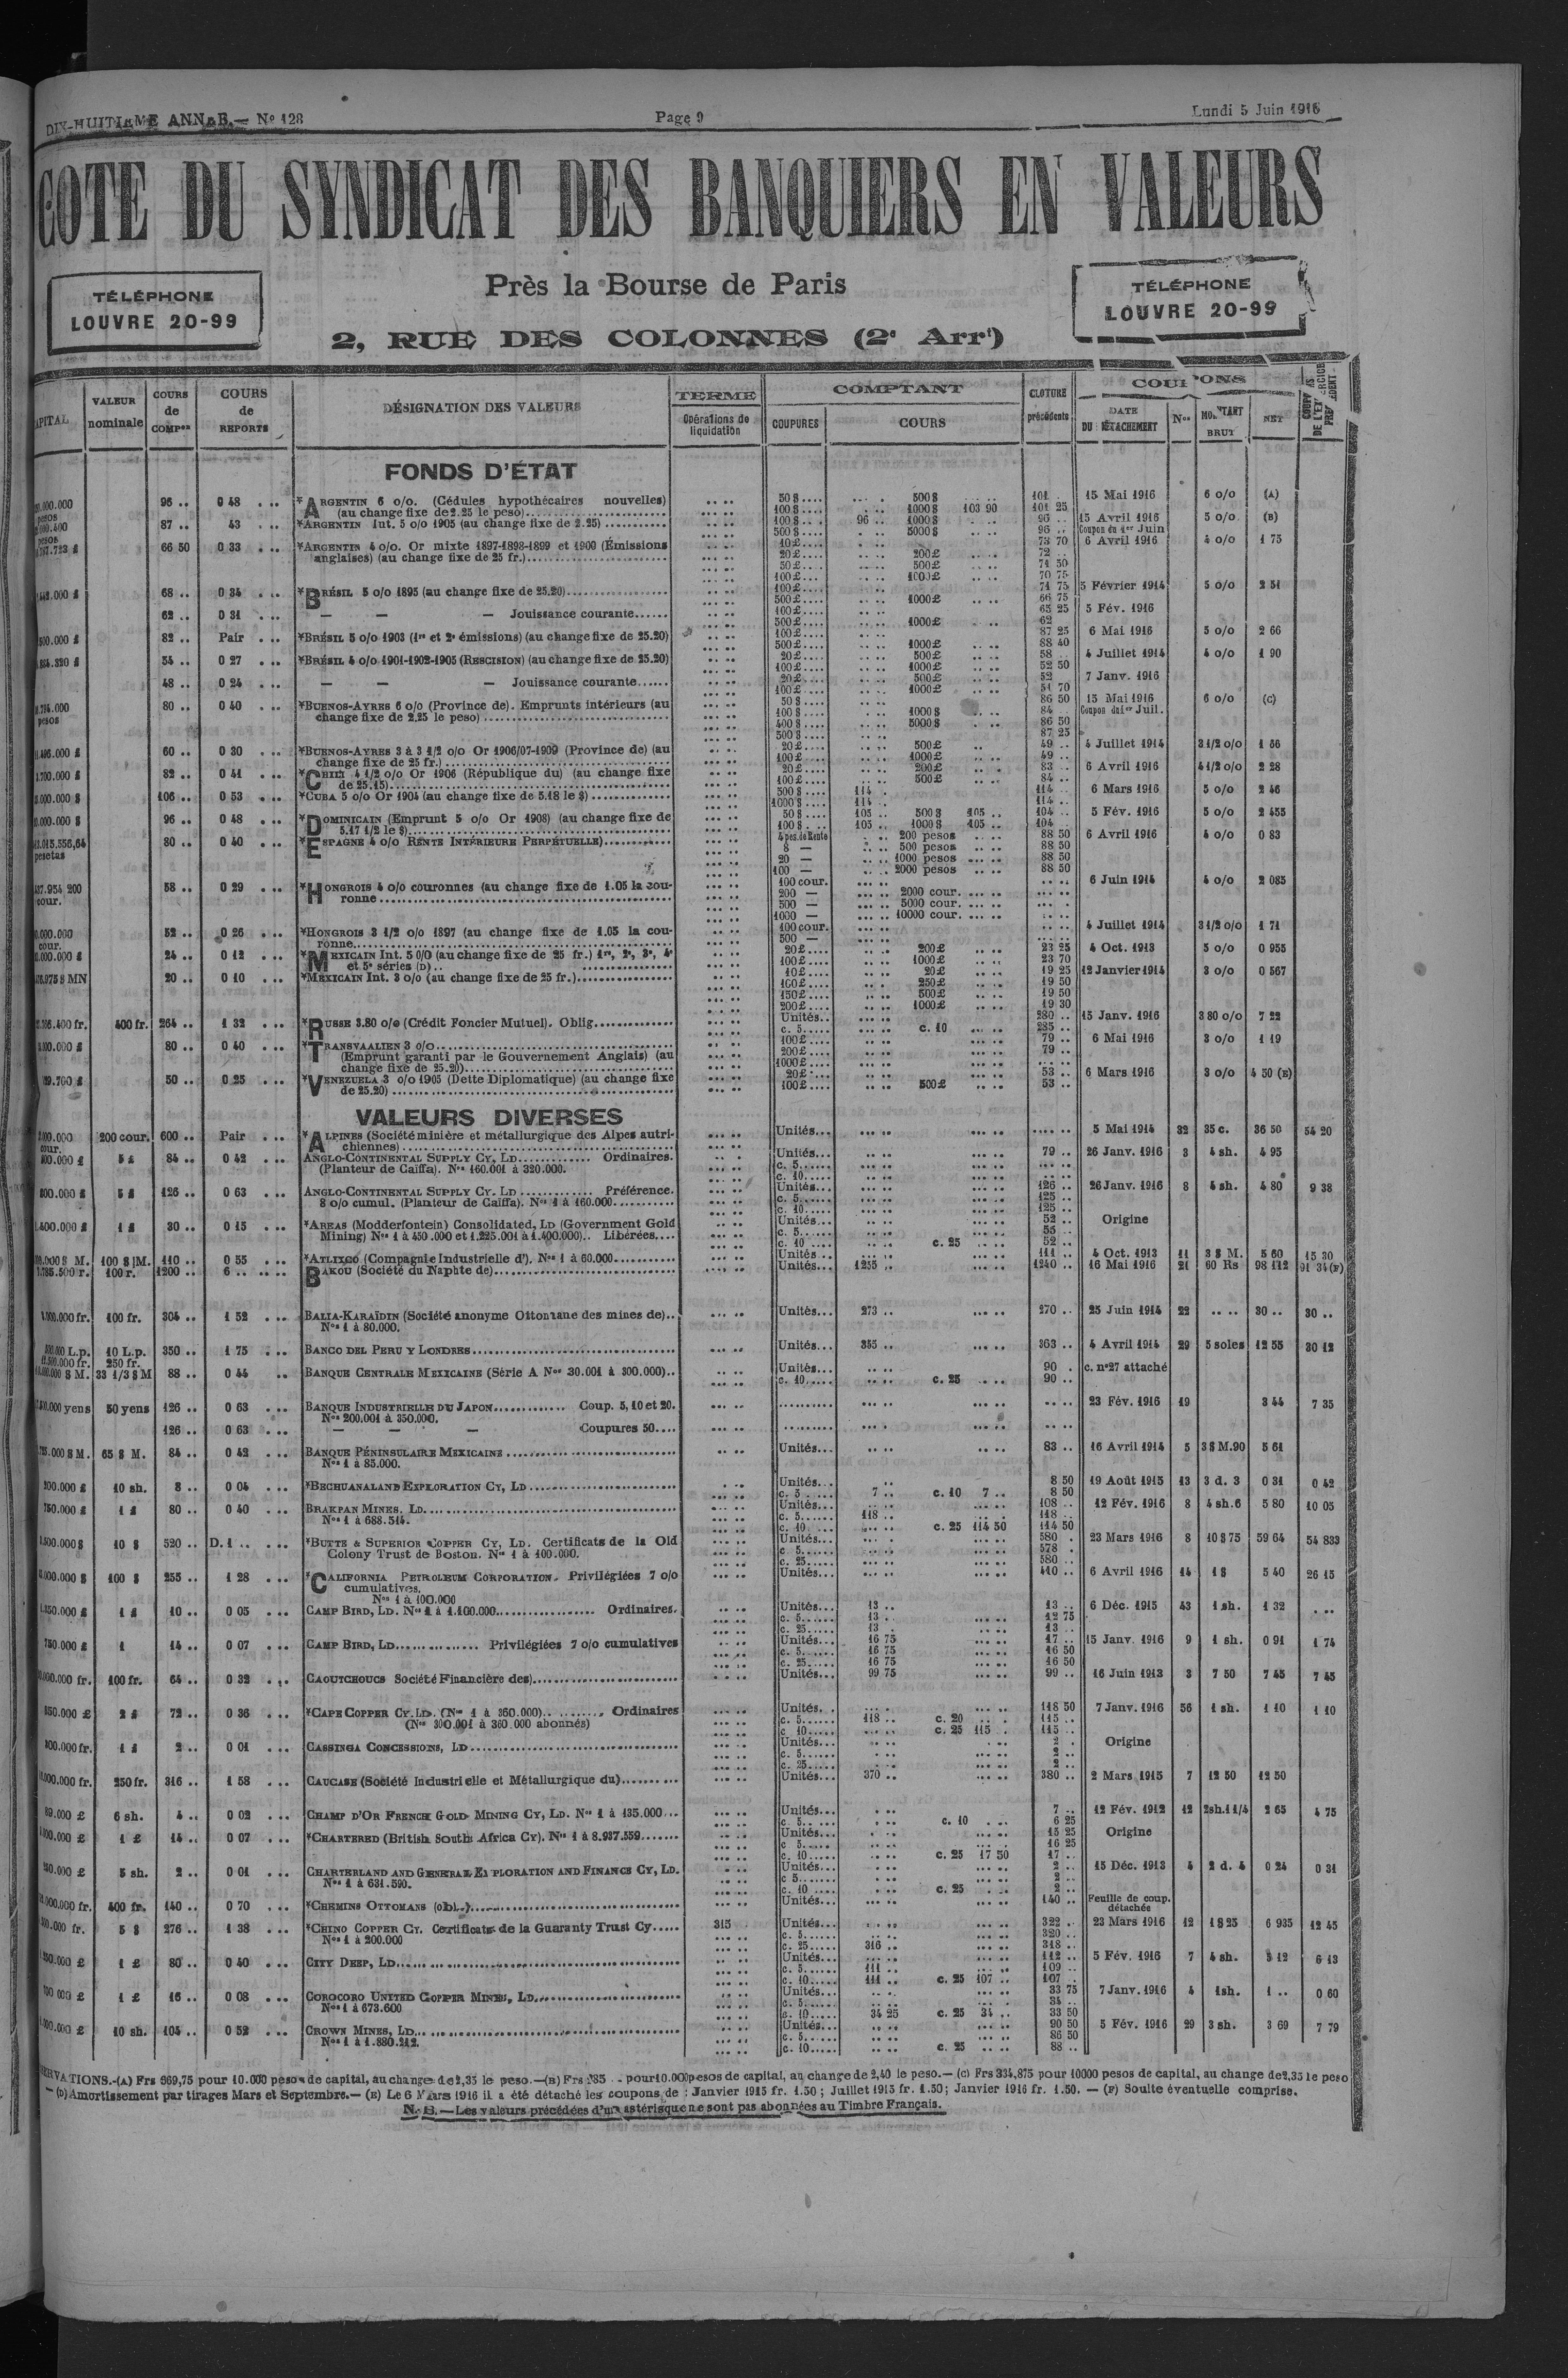 DIX-HUITIEME ANNEE.— Nº 128
Page 9
Lundi 5 Juin 1916
COTE DU SYNDICAT DES BANQUIERS EN VALEURS
TÉLÉPHONE
LOUVRE 20-99
Près la Bourse de Paris
2, RUE DES COLONNES (2e Arrt)
TÉLÉPHONE
LOUVRE 20-99
VALEUR nominale
COURS de COMPon
COURS de REPORTS
DÉSIGNATION DES VALEURS
TERME
Opérations de liquidation
COMPTANT
COUPURES
COURS
CLOTURE précédente
COUPONS
DATE DU DÉTACHEMENT
Nos
MONTANT BRUT
NET
FONDS D'ÉTAT
96 .. 0 48 *ARGENTIN 6 o/o. (Cédules hypothécaires nouvelles) 50 $ 500 $ 101 . 15 Mai 1916 6 o/o (A)
(au change fixe de 2.25 le peso) 100 $ 1000 $ 103 90 101 25
87 .. 43 *ARGENTIN Int. 5 o/o 1905 (au change fixe de 2.25) 100 $ 96 .. 1000 $ 96 .. 15 Avril 1916 5 o/o (B)
500 $ 5000 $ 96 .. Coupon du 1er Juin
66 50 0 33 *ARGENTIN 4 o/o. Or mixte 1897-1898-1899 et 1900 (Émissions 10 £ 73 70 6 Avril 1916 4 o/o 1 75
anglaises) (au change fixe de 25 fr.) 20 £ 200 £ 72 ..
50 £ 500 £ 71 50
100 £ 1000 £ 70 75
68 .. 0 34 *BRÉSIL 5 o/o 1895 (au change fixe de 25.20) 100 £ 71 75 5 Février 1914 5 o/o 2 51
500 £ 1000 £ 66 75
62 .. 0 31 — — — Jouissance courante 100 £ 65 25 5 Fév. 1916
500 £ 1000 £ 62
82 .. Pair *BRÉSIL 5 o/o 1903 (1re et 2e émissions) (au change fixe de 25.20) 100 £ 87 25 6 Mai 1916 5 o/o 2 66
500 £ 1000 £ 88 40
54 .. 0 27 *BRÉSIL 4 o/o 1901-1902-1905 (RESCISION) (au change fixe de 25.20) 20 £ 500 £ 58 .. 4 Juillet 1914 4 o/o 1 90
100 £ 1000 £ 52 50
48 .. 0 24 — — — Jouissance courante 20 £ 500 £ 52 7 Janv. 1916
100 £ 1000 £ 51 70
80 .. 0 40 *BUENOS-AYRES 6 o/o (Province de). Emprunts intérieurs (au 50 $ 86 50 15 Mai 1916 6 o/o (C)
change fixe de 2.25 le peso) 100 $ 1000 $ 84 Coupon du 1er Juil.
400 $ 5000 $ 86 50
500 $ 87 25
60 .. 0 30 *BUENOS-AYRES 3 à 3 1/2 o/o Or 1906/07-1909 (Province de) (au 20 £ 500 £ 49 .. 4 Juillet 1914 3 1/2 o/o 1 56
change fixe de 25 fr.) 100 £ 1000 £ 49 ..
82 .. 0 41 *CHILI 4 1/2 o/o Or 1906 (République du) (au change fixe 20 £ 200 £ 83 .. 6 Avril 1916 4 1/2 o/o 2 28
de 25.15) 100 £ 500 £ 84 ..
106 .. 0 53 *CUBA 5 o/o Or 1904 (au change fixe de 5.18 le $) 500 $ 114 . 114 .. 6 Mars 1916 5 o/o 2 46
1000 $ 114 .. 114 ..
96 .. 0 48 *DOMINICAIN (Emprunt 5 o/o Or 1908) (au change fixe de 50 $ 105 .. 500 $ 105 .. 104 .. 5 Fév. 1916 5 o/o 2 455
5.17 1/2 le $) 100 $ 105 .. 1000 $ 105 .. 104
80 .. 0 40 *ESPAGNE 4 o/o RENTE INTÉRIEURE PERPÉTUELLE) 4 pes. de Rente 200 pesos 88 50 6 Avril 1916 4 o/o 0 83
8 — 500 pesos 88 50
20 — 1000 pesos 88 50
100 — 2000 pesos 88 50
58 .. 0 29 *HONGROIS 4 o/o couronnes (au change fixe de 1.05 la cou- 100 cour. 6 Juin 1914 4 o/o 2 085
ronne 200 — 2000 cour.
500 — 5000 cour.
1000 — 10000 cour.
52 .. 0 26 *HONGROIS 3 1/2 o/o 1897 (au change fixe de 1.05 la cou- 100 cour. 4 Juillet 1914 3 1/2 o/o 1 71
ronne 500 —
24 .. 0 12 *MEXICAIN Int. 5 0/0 (au change fixe de 25 fr.) 1re, 2e, 3e, 4e 20 £ 200 £ 23 25 4 Oct. 1913 5 o/o 0 955
et 5e séries (D) 100 £ 1000 £ 23 70
20 .. 0 10 *MEXICAIN Int. 3 o/o (au change fixe de 25 fr.) 10 £ 20 £ 19 25 12 Janvier 1914 3 o/o 0 567
100 £ 250 £ 19 50
150 £ 500 £ 19 50
200 £ 1000 £ 19 30
400 fr. 264 .. 1 32 *RUSSE 3.80 o/o (Crédit Foncier Mutuel). Oblig. Unités 280 .. 15 Janv. 1916 3 80 o/o 7 22
c. 5 c. 10 285 ..
80 .. 0 40 *TRANSVAALIEN 3 o/o 100 £ 79 .. 6 Mai 1916 3 o/o 1 19
(Emprunt garanti par le Gouvernement Anglais) (au 200 £ 79 ..
change fixe de 25.20) 1000 £
50 .. 0 25 *VENEZUELA 3 o/o 1905 (Dette Diplomatique) (au change fixe 20 £ 53 .. 6 Mars 1916 3 o/o 4 50 (E)
de 25.20) 100 £ 500 £ 53 ..
VALEURS DIVERSES
200 cour. 600 .. Pair *ALPINES (Société minière et métallurgique des Alpes autri- Unités 5 Mai 1914 32 35 c. 36 50 54 20
chiennes)
5 £ 84 .. 0 42 ANGLO-CONTINENTAL SUPPLY CY, LD Ordinaires. Unités 79 .. 26 Janv. 1916 3 4 sh. 4 95
(Planteur de Caïffa). Nos 160.001 à 320.000. c. 5
c. 10
5 £ 126 .. 0 63 ANGLO-CONTINENTAL SUPPLY CY. LD Préférence. Unités 126 .. 26 Janv. 1916 8 4 sh. 4 80 9 38
8 o/o cumul. (Planteur de Caïffa). Nos 1 à 160.000 c. 5 125 ..
c. 10 125 ..
1 £ 30 .. 0 15 *AREAS (Modderfontein) Consolidated, LD (Government Gold Unités 52 .. Origine
Mining) Nos 1 à 450.000 et 1.225.001 à 1.400.000) Libérées c. 5 55 ..
c. 10 c. 25 52 ..
100 $ M. 110 .. 0 55 *ATLIXCO (Compagnie Industrielle d'). Nos 1 à 60.000 Unités 111 .. 4 Oct. 1913 11 3 $ M. 5 60 15 30
100 r. 1200 .. 6 .. BAKOU (Société du Naphte de) Unités 1255 .. 1240 .. 16 Mai 1916 21 60 Rs 98 112 91 34 (F)
100 fr. 304 .. 1 52 BALIA-KARAÏDIN (Société anonyme Ottomane des mines de) Unités 273 .. 270 .. 25 Juin 1914 22 30 .. 30 ..
Nos 1 à 80.000.
10 L.p. 350 .. 1 75 BANCO DEL PERU Y LONDRES Unités 355 .. 363 .. 4 Avril 1914 29 5 soles 12 55 30 12
250 fr.
33 1/3 $ M 88 .. 0 44 BANQUE CENTRALE MEXICAINE (Série A Nos 30.001 à 300.000) Unités 90 . c. nº 27 attaché
c. 10 c. 25 90 ..
50 yens 126 .. 0 63 BANQUE INDUSTRIELLE DU JAPON Coup. 5, 10 et 20. 23 Fév. 1916 19 3 44 7 35
Nos 200.001 à 350.000.
126 .. 0 63 — — — Coupures 50
65 $ M. 84 .. 0 42 BANQUE PÉNINSULAIRE MEXICAINE Unités 83 .. 16 Avril 1914 5 3 $ M.90 5 61
Nos 1 à 85.000.
10 sh. 8 .. 0 04 *BECHUANALAND EXPLORATION CY, LD Unités 8 50 19 Août 1915 13 3 d. 3 0 31 0 42
c. 5 7 .. c. 10 7 .. 8 50
1 £ 80 .. 0 40 BRAKPAN MINES, LD Unités 108 .. 12 Fév. 1916 8 4 sh.6 5 80 10 05
Nos 1 à 688.514. c. 5 118 .. 118 ..
c. 10 c. 25 114 50 114 50
10 $ 520 .. D. 1 .. *BUTTE & SUPERIOR COPPER CY, LD. Certificats de la Old Unités 580 . 23 Mars 1916 8 10 $ 75 59 64 54 833
Colony Trust de Boston. Nos 1 à 100.000. c. 5 578 .
c. 25 580 ..
100 $ 255 .. 1 28 *CALIFORNIA PETROLEUM CORPORATION. Privilégiées 7 o/o Unités 110 .. 6 Avril 1916 14 1 $ 5 40 26 15
cumulatives.
Nos 1 à 100.000
1 £ 10 .. 0 05 CAMP BIRD, LD. Nos 1 à 1.100.000 Ordinaires. Unités 13 .. 13 .. 6 Déc. 1915 43 1 sh. 1 32
c. 5 13 .. 12 75
c. 25 13 . 13 ..
1 14 .. 0 07 CAMP BIRD, LD Privilégiées 7 o/o cumulatives Unités 16 75 17 .. 15 Janv. 1916 9 1 sh. 0 91 1 74
c. 5 16 75 16 50
c. 25 16 75 16 50
100 fr. 64 .. 0 32 CAOUTCHOUCS Société Financière des) Unités 99 75 99 .. 16 Juin 1913 3 7 50 7 45 7 45
2 £ 72 .. 0 36 *CAPE COPPER CY, LD. (Nos 1 à 360.000) Ordinaires Unités 118 50 7 Janv. 1916 56 1 sh. 1 10 1 10
(Nos 300.001 à 360.000 abonnés) c. 5 118 .. c. 20 115 ..
c. 10 c. 25 115 . 115 ..
1 £ 2 .. 0 01 CASSINGA CONCESSIONS, LD Unités 2 . Origine
c. 5 2 ..
c. 25 2 ..
250 fr. 316 .. 1 58 CAUCASE (Société Industrielle et Métallurgique du) Unités 370 .. 380 .. 2 Mars 1915 7 12 50 12 50
6 sh. 4 .. 0 02 CHAMP D'OR FRENCH GOLD MINING CY, LD. Nos 1 à 135.000 Unités 7 .. 12 Fév. 1912 12 2sh.1 1/4 2 65 4 75
c. 5 c. 10 6 25
1 £ 14 .. 0 07 *CHARTERED (British South Africa CY). Nos 1 à 8.937.559 Unités 15 25 Origine
c 5 16 25
c. 10 c. 25 17 50 17 ..
5 sh. 2 .. 0 01 CHARTERLAND AND GENERAL EXPLORATION AND FINANCE CY, LD. Unités 2 .. 15 Déc. 1913 4 2 d. 4 0 24 0 31
Nos 1 à 631.590. c 5 2 ..
c. 10 c. 25 2 ..
400 fr. 140 .. 0 70 *CHEMINS OTTOMANS (obl.) Unités 140 .. Feuille de coup.
détachée
5 $ 276 .. 1 38 *CHINO COPPER CY. Certificats de la Guaranty Trust Cy 315 Unités 322 .. 23 Mars 1916 12 1 $ 25 6 935 12 45
Nos 1 à 200.000 c. 5 320 ..
c. 25 316 .. 318 ..
1 £ 80 .. 0 40 CITY DEEP, LD Unités 112 .. 5 Fév. 1916 7 4 sh. 5 12 6 13
c. 5 111 .. 109 ..
c. 10 111 .. c. 25 107 .. 107 .
1 £ 16 .. 0 08 COROCORO UNITED COPPER MINES, LD Unités 33 75 7 Janv. 1916 4 1sh. 1 .. 0 60
Nos 1 à 673.600 c. 5 34 ..
c. 10 34 25 c. 25 34 .. 33 50
10 sh. 104 .. 0 52 CROWN MINES, LD Unités 90 50 5 Fév. 1916 29 3 sh. 3 69 7 79
Nos 1 à 1.880.212. c. 5 86 50
c. 10 c. 25 88 ..
OBSERVATIONS.-(A) Frs 669,75 pour 10.000 pesos de capital, au change de 2,35 le peso.—(B) Frs pour 10.000 pesos de capital, au change de 2,40 le peso.— (C) Frs 334,875 pour 10000 pesos de capital, au change de 2,35 le peso
— (D) Amortissement par tirages Mars et Septembre.— (E) Le 6 Mars 1916 il a été détaché les coupons de : Janvier 1915 fr. 1.50 ; Juillet 1915 fr. 1.50; Janvier 1916 fr. 1.50. — (F) Soulte éventuelle comprise.
N.-B.—Les valeurs précédées d'un astérisque ne sont pas abonnées au Timbre Français.